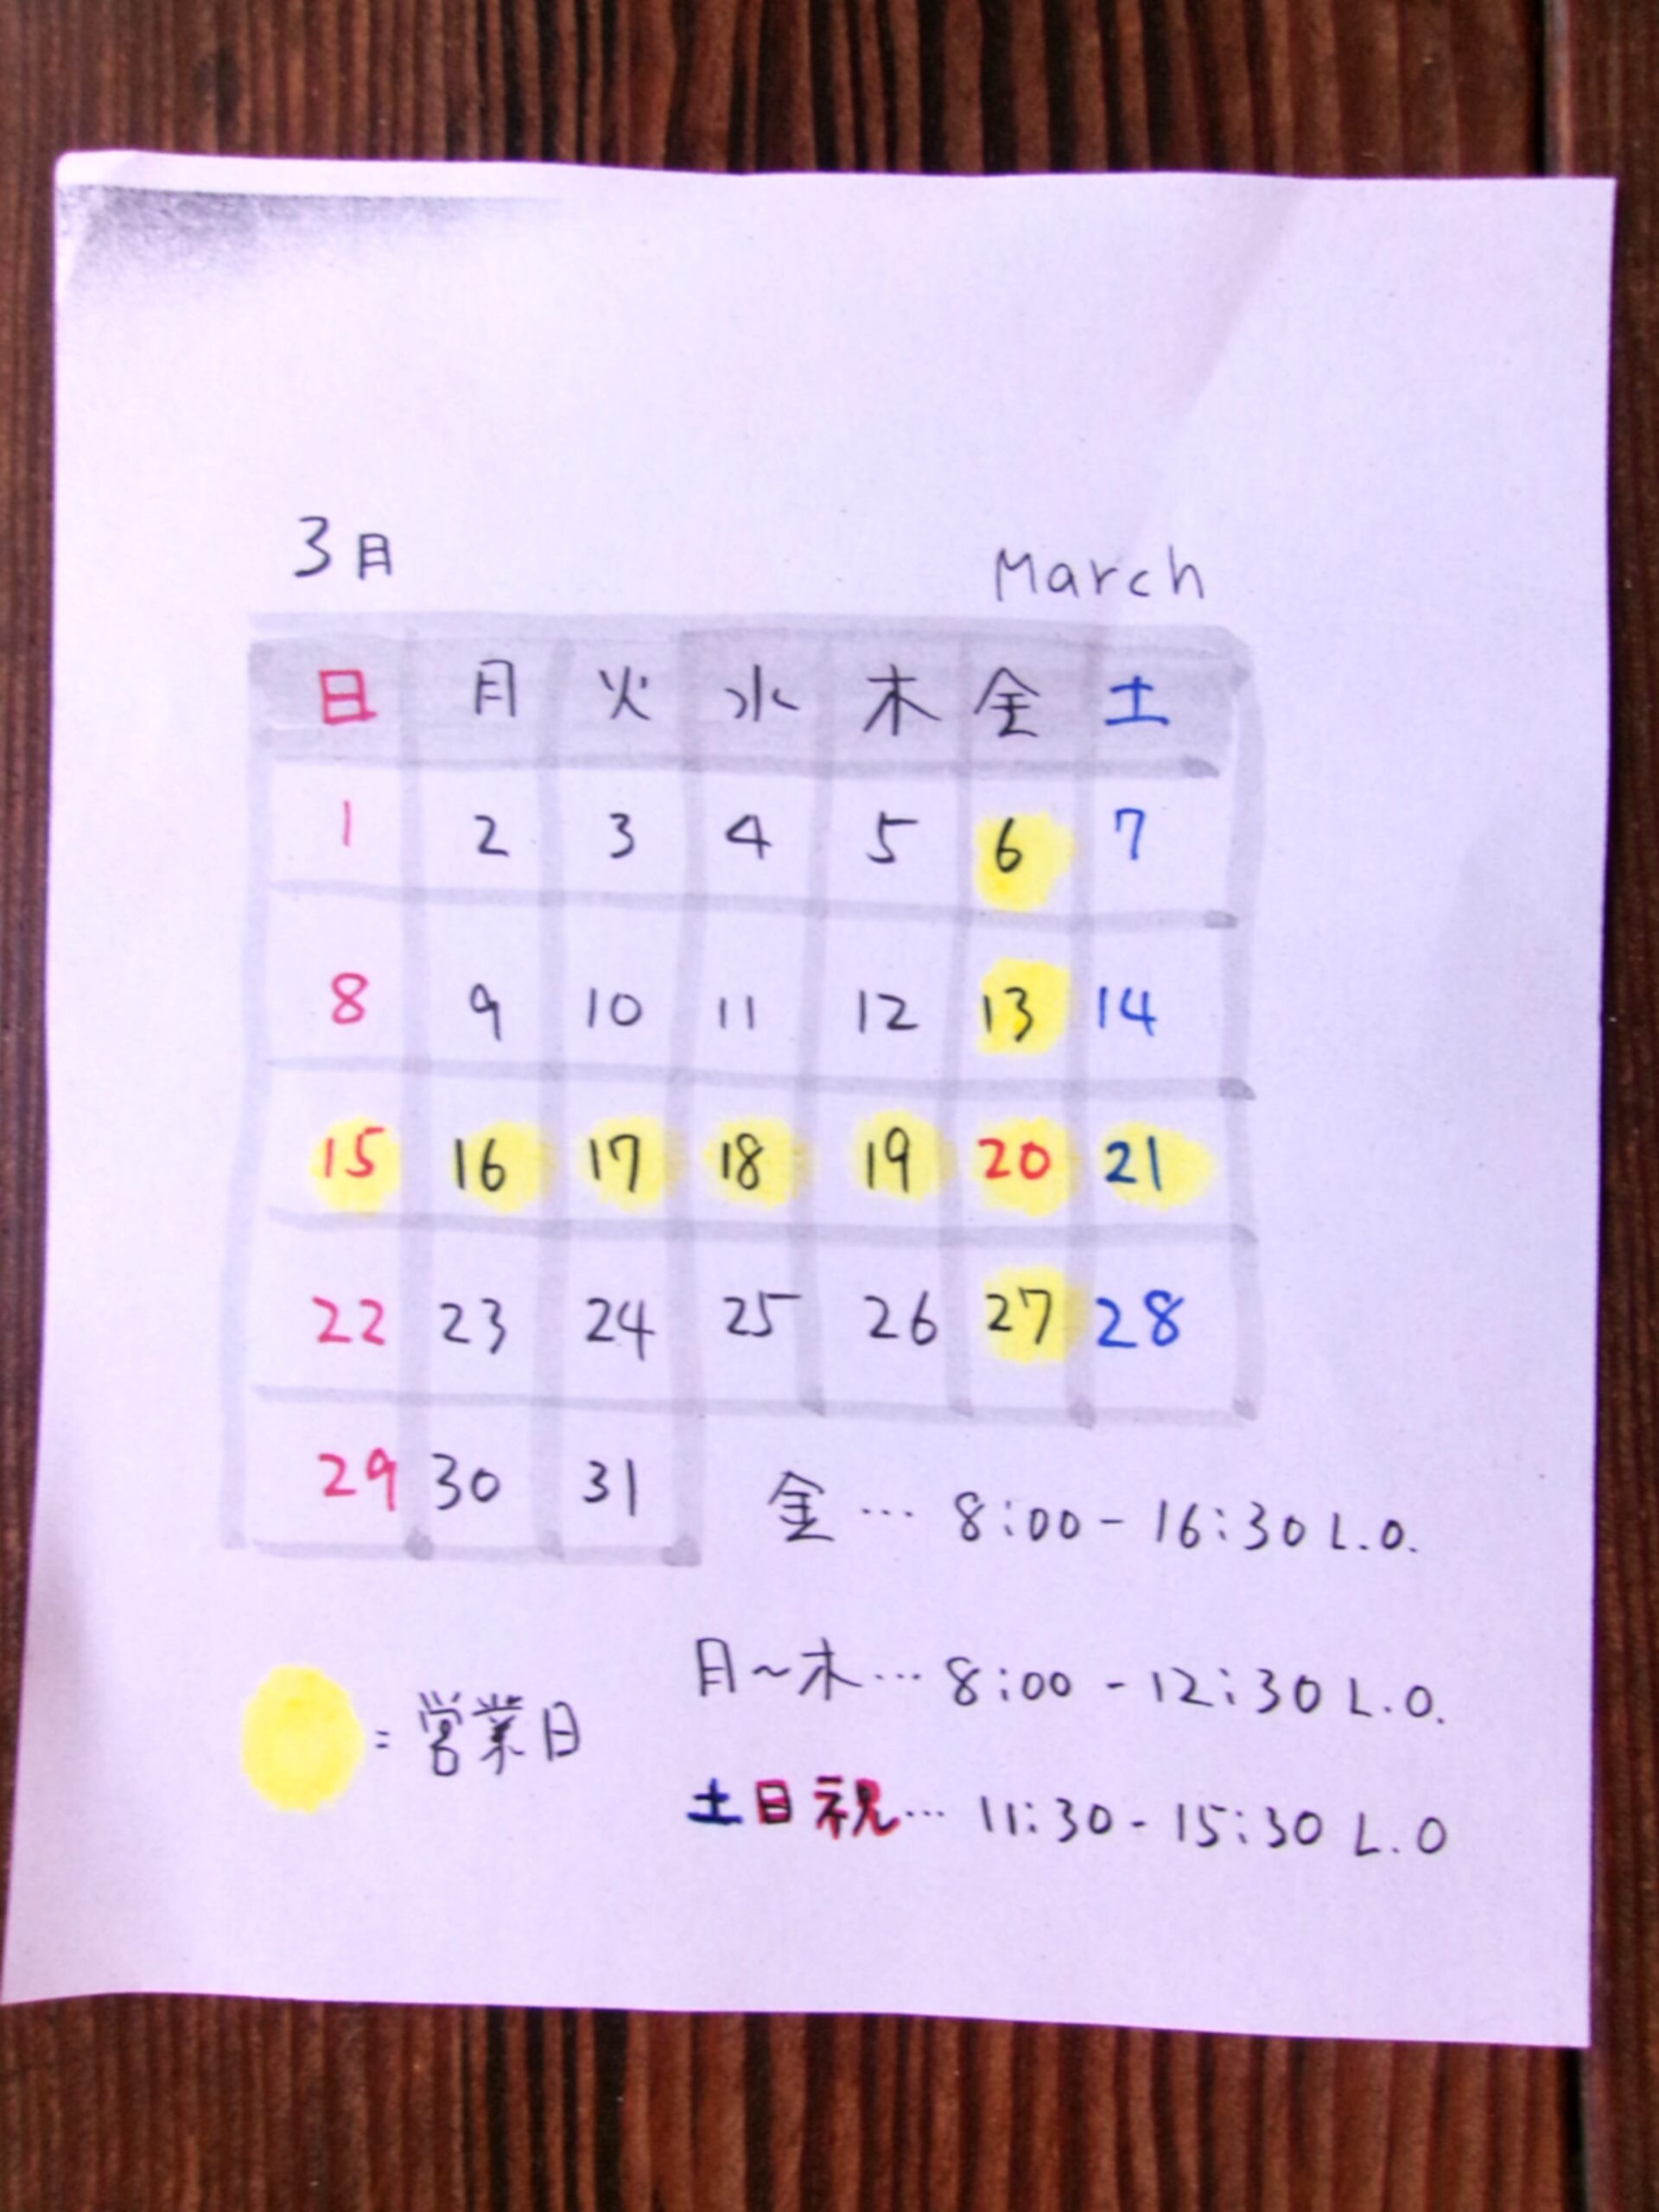 3月 March
日 月 火 水 木 金 土
1 2 3 4 5 6 7
8 9 10 11 12 13 14
15 16 17 18 19 20 21
22 23 24 25 26 27 28
29 30 31
金… 8:00 - 16:30 L.O.
月~木… 8:00 - 12:30 L.O.
= 営業日
土日祝… 11:30 - 15:30 L.O